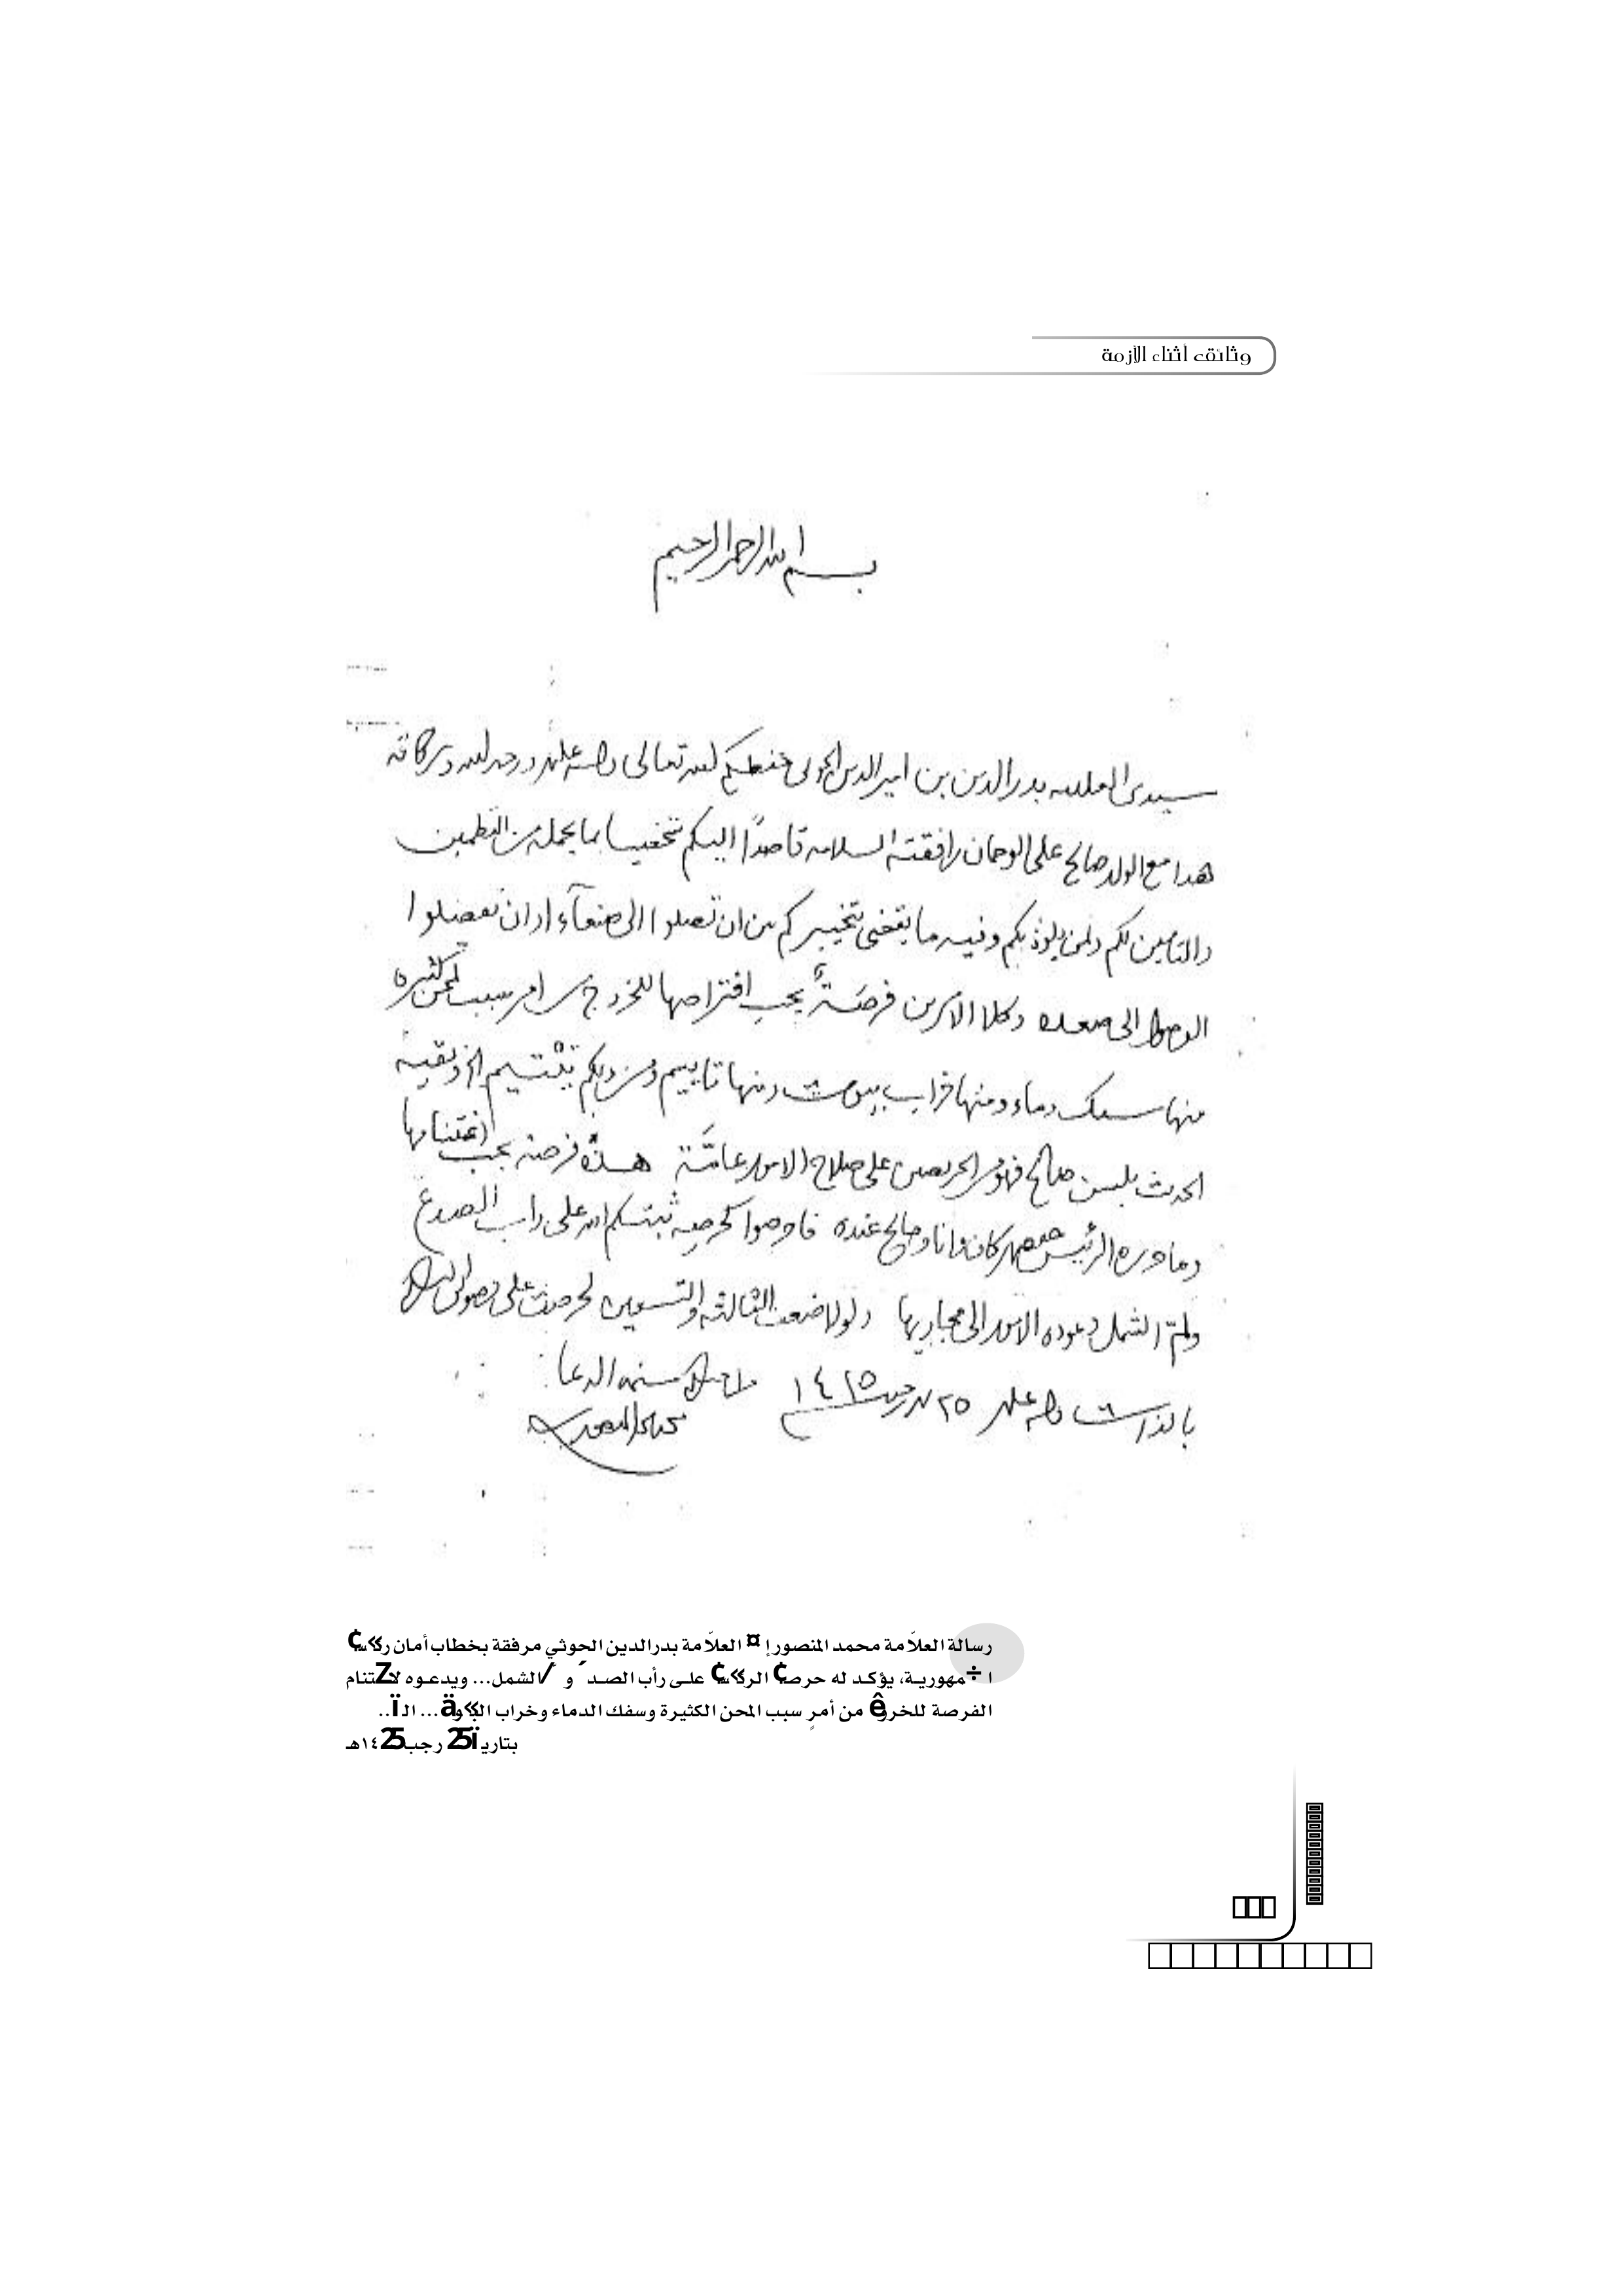 وثائق أثناء الأزمة
بسم الله الرحمن الرحيم
سيدي العلامه بدرالدين بن امير الدين الحوثي حفظكم الله تعالى والسلام عليكم ورحمة الله وبركاته
هذا مع الولد صالح على الوجمان رافقته السلامه قاصدًا اليكم شخصيا بما يحمله من التطمين
والتامين لكم ولمن يلوذ بكم وفيه ما يقضي بتخييركم من ان تصلوا الى صنعآء او ان تفضلوا
الوصول الى صعده وكلا الامرين فرصَةٌ يجب افتراصها للخروج من امر سبب المحن الكثيره
منها سفك دماء ومنها خراب بيوت ومنها تاييم ومن تيتيم الخ وبقية
الحديث بلسن صالح فهو من الحريصين على صلاح الامور عامَّة هذه فرصة يجب اغتنامها
وما حرره الرئيس وانا وصالح عنده فاحرصوا كحرصه ثبتكم الله على راب الصدع
ولمّ الشمل وعوده الامور الى مجاريها ولولا ضعف الثالثه والتسعين لحرصت على وصولي اليكم
بالذات والسلام عليكم ٢٥ رجب ١٤٢٥ الدعا
محمد محمد المنصور
رسالة العلاّمة محمد المنصور إ¤ العلاّمة بدرالدين الحوثي مرفقة بخطاب أمان
ا÷مهورية، يؤكد له على رأب و الشمل... ويدعوه
الفرصة للخروê من أمرٍ سبب المحن الكثيرة وسفك الدماء وخراب ... الـï..
بتاريï25 رجب 25١٤هـ